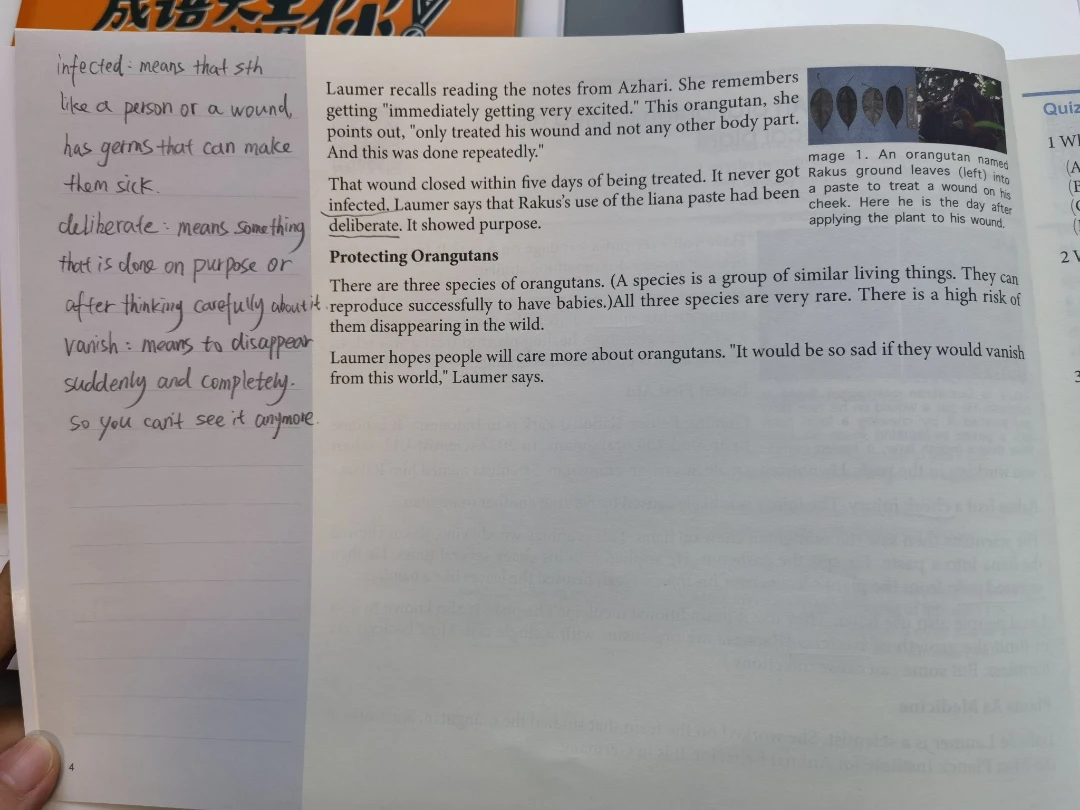 成语大王
infected: means that sth
like a person or a wound,
has germs that can make
them sick.
deliberate: means something
that is done on purpose or
after thinking carefully about it.
vanish: means to disappear
suddenly and completely.
so you can't see it anymore.
4
Laumer recalls reading the notes from Azhari. She remembers
getting "immediately getting very excited." This orangutan, she
points out, "only treated his wound and not any other body part.
And this was done repeatedly."
That wound closed within five days of being treated. It never got
infected. Laumer says that Rakus's use of the liana paste had been
deliberate. It showed purpose.
mage 1. An orangutan named
Rakus ground leaves (left) into
a paste to treat a wound on his
cheek. Here he is the day after
applying the plant to his wound.
Protecting Orangutans
There are three species of orangutans. (A species is a group of similar living things. They can
reproduce successfully to have babies.)All three species are very rare. There is a high risk of
them disappearing in the wild.
Laumer hopes people will care more about orangutans. "It would be so sad if they would vanish
from this world," Laumer says.
Quiz
1
2
3